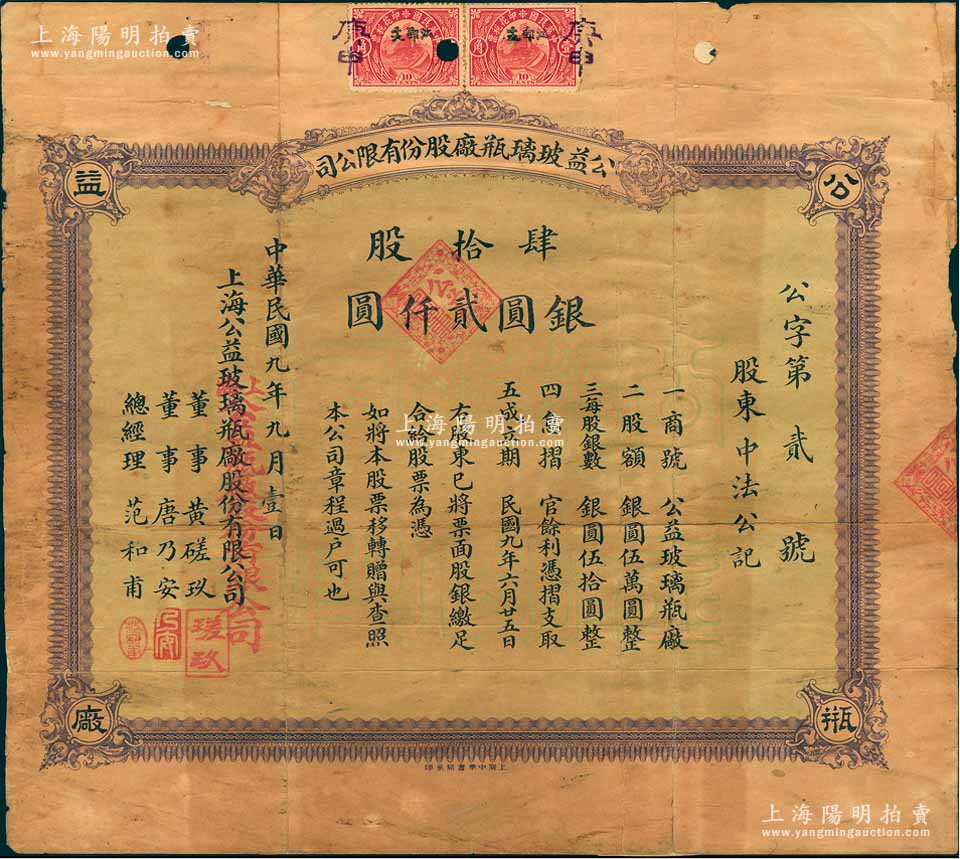 上海陽明拍賣
www.yangmingauction.com
上海陽明拍賣
www.yangmingauction.com
庚申
庚申
中華民國印花稅票
角
10
CENTS
10
CENTS
公益玻璃瓶廠股份有限公司
公
益
瓶
廠
公字第貳號
股東中法公記
肆拾股
銀圓貳仟圓
一商號 公益玻璃瓶廠
二股額 銀圓伍萬圓整
三每股銀數 銀圓伍拾圓整
四息摺 官餘利憑摺支取
五成立期 民國九年六月廿五日
右股東已將票面股銀繳足
合給股票為憑
如將本股票移轉贈與查照
本公司章程過戶可也
中華民國九年九月壹日
上海公益玻璃瓶廠股份有限公司
董事 黃磋玖
董事 唐乃安
總經理 范和甫
瑳玖
乃安
上海中華書局承印
上海陽明拍賣
www.yangmingauction.com
上海陽明拍賣
www.yangmingauction.com